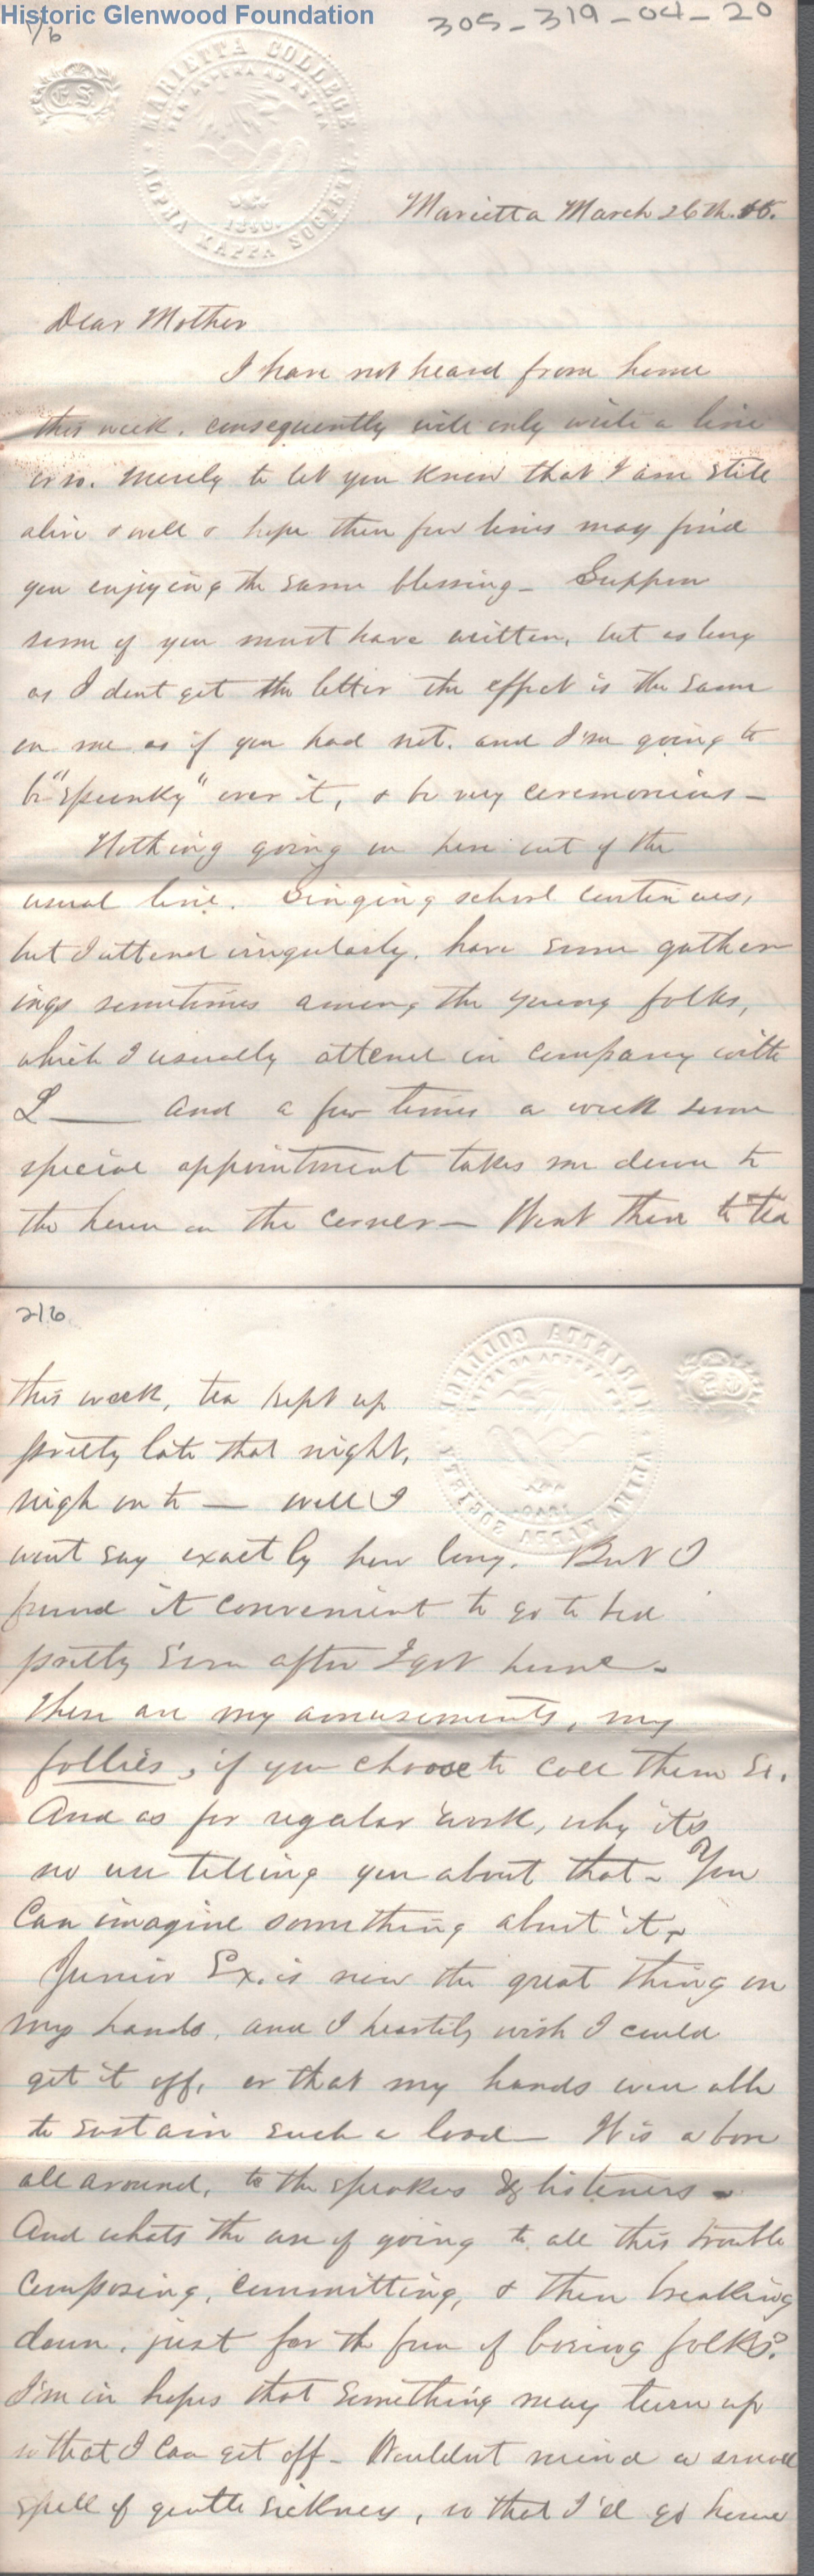 Historic Glenwood Foundation
305-319-04-20
1/6
MARIETTA COLLEGE
PER ASPERA AD ASTRA
1840.
ALPHA KAPPA SOCIETY
Marietta March 26th.
Dear Mother
I have not heard from home
this week. consequently will only write a line
or so. merely to let you know that I am still
alive & well & hope these few lines may find
you enjoying the same blessing – Suppose
some of you must have written, but as long
as I dont get the letter the effect is the same
on me as if you had not. and I'm going to
be "spunky" over it, & be very ceremonious –
Nothing going on here out of the
usual line. Singing school continues,
but I attend irregularly. have some gather
ings sometimes among the young folks,
which I usually attend in company with
L—— and a few times a week some
special appointment takes me down to
the house on the corner – Went there to tea
2/6
this week, tea kept up
pretty late that night,
nigh on to — well I
wont say exactly how long. But I
found it convenient to go to bed
pretty soon after I got home –
These are my amusements, my
follies, if you choose to call them so.
And as for regular work, why its
no use telling you about that – You
can imagine something about it –
Junior Ex. is now the great thing on
my hands, and I heartily wish I could
get it off, or that my hands were able
to sustain such a load – It is a bore
all around, to the speakers & listeners –
And whats the use of going to all this trouble
composing, committing, & then breaking
down, just for the fun of boring folks?
I'm in hopes that something may turn up
so that I can get off – Wouldnt mind a small
spell of gentle sickness, so that I'd go home